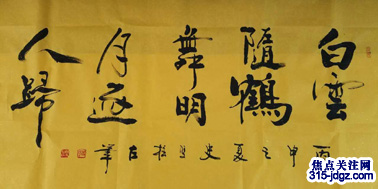 白雲
隨鶴
舞明
月逐
人歸
丙申之夏史 左筆
焦点关注网
315-jdgz.com